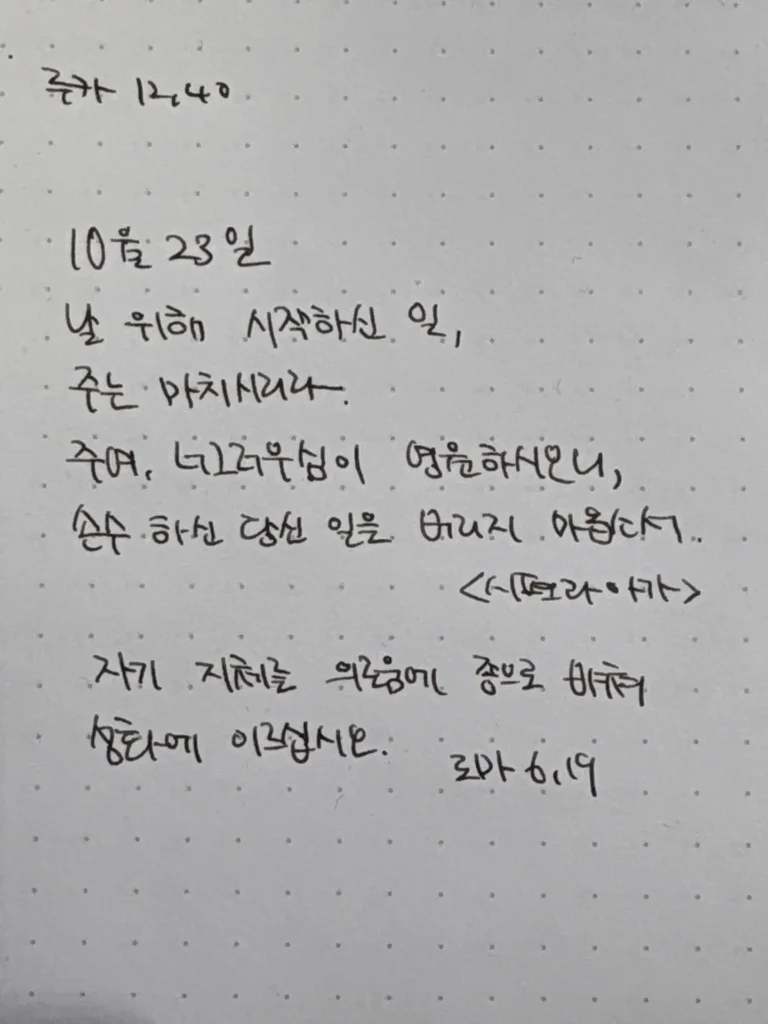 루카 12,40
10월 23일
날 위해 시작하신 일,
주는 마치시리라.
주여, 너그러우심이 영원하시오니,
손수 하신 당신 일을 버리지 마옵소서.
자기 지체를 의로움에 종으로 바쳐
성화에 이르십시오.
로마 6,19